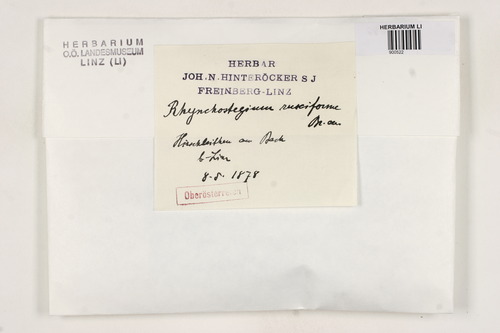 HERBARIUM
O.Ö. LANDESMUSEUM
LINZ (LI)
HERBARIUM LI
HERBAR
JOH. N. HINTERÖCKER S J
FREINBERG-LINZ
Rhynchostegium rusciforme
am Bach
b. Linz
8.5. 1878
Oberösterreich